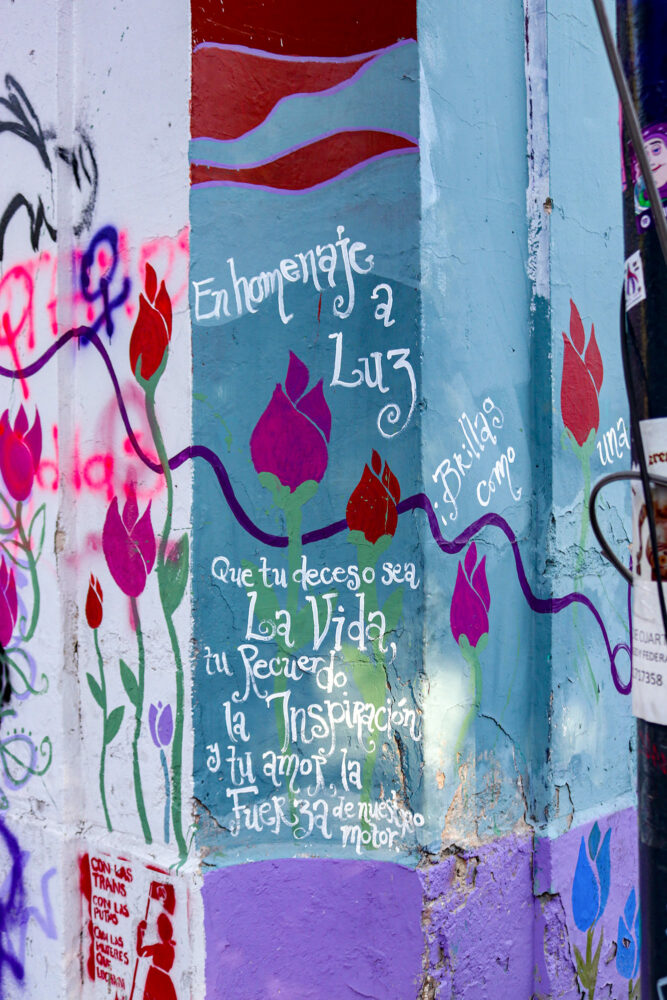 En homenaje
a
Luz
Que tu deceso sea
La Vida,
tu Recuerdo
la Inspiración
y tu amor, la
Fuerza de nuestro
motor.
¡Brillas
como
una
CON LAS
TRANS
CON LAS
PUTAS
CON LAS
MUJERES
QUE
LUCHAN
E CUART
717358